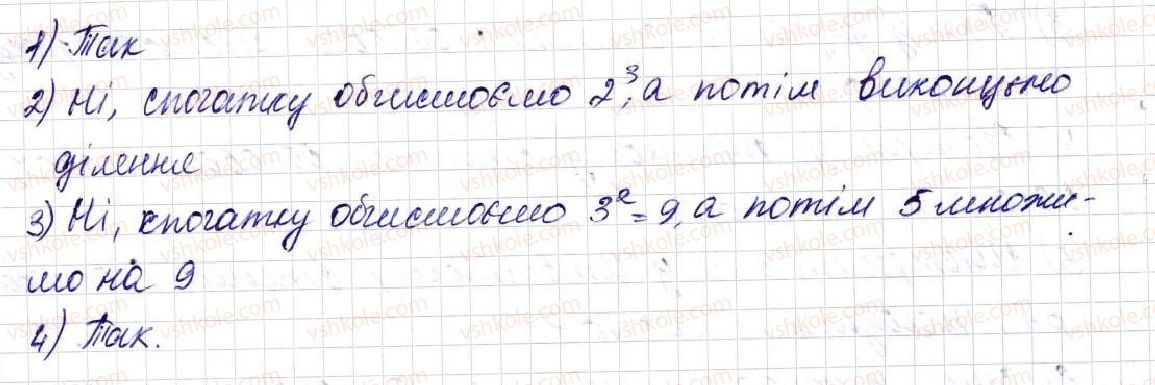 1) Так
2) Ні, спочатку обчислюємо 2³, а потім виконуємо
ділення
3) Ні, спочатку обчислюємо 3² = 9, а потім 5 множи-
мо на 9
4) Так.